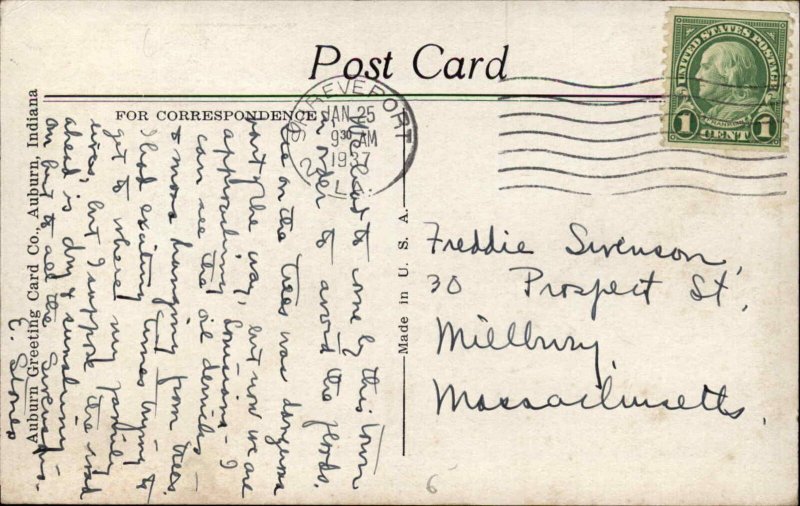 Post Card
FOR CORRESPONDENCE
SHREVEPORT
JAN 25
9 30 AM
1937
LA.
2
UNITED STATES POSTAGE
FRANKLIN
1 CENT 1
to come by this town
in order to avoid the floods.
Ice on the trees was dangerous
part of the way, but now we are
approaching Louisiana - I
can see the oil derricks -
& moss hanging from trees.
Had exciting times trying to
get to where my family
lives, but I suppose the road
ahead is dry & sunshiny
to all the Swensons -
E. Stores
Auburn Greeting Card Co., Auburn, Indiana
Made in U. S. A.
Freddie Swenson,
30 Prospect St,
Millbury,
Massachusetts.
6